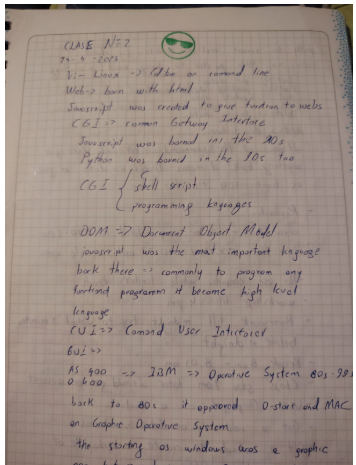 CLASE N=2
Vi- Linux -> Editor on comand line
Web-> born with html
Javascript was created to give function to webs
CGI -> common Getway Interface
Javascript was borned in the 90s
Python was borned in the 90s too
CGI { shell script
programming languages
DOM => Document Object Model
javascript was the most important language
back there => commonly to program any
functional programm it become high level
language
CUI => Comand User Interface
GUI =>
AS 400 => IBM => Operative System 80s-
back to 80s it appeared and MAC
on Graphic Operative System
the starting os windows was a graphic